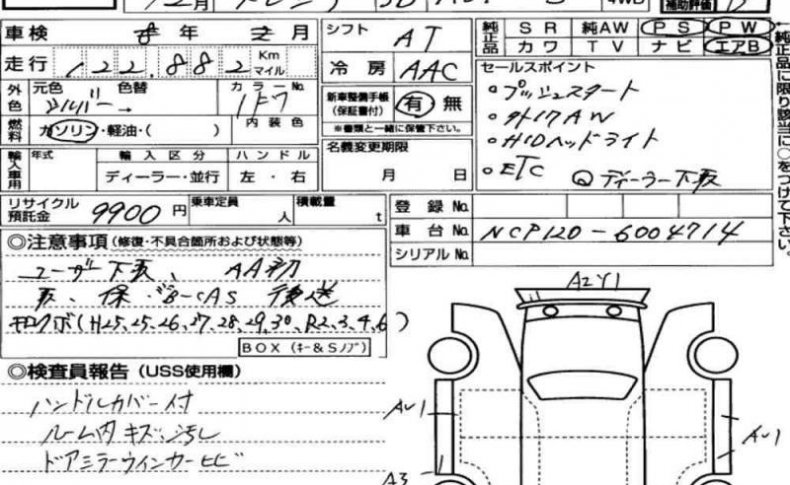 車検 年 月
シフト AT
純正品 SR 純AW PS PW
カワ TV ナビ エアB
←純正品に限り該当に○をつけて下さい。
走行 122,882 Km マイル
冷房 AAC
セールスポイント
。プッシュスタート
。社外17AW
。HIDヘッドライト
。ETC
ディーラー下取
外色 元色 色替 カラーNo.
シルバー → 1F7
新車整備手帳(保証書付) 有・無
※書類と一緒に保管下さい。
燃料 ガソリン・軽油・( ) 内装色
名義変更期限
月 日
輸入車用 年式 輸入区分 ハンドル
ディーラー・並行 左・右
リサイクル預託金 9900円 乗車定員 人 積載量 t
登録No.
車台No. NCP120-6004714
シリアルNo.
◎注意事項(修復・不具合箇所および状態等)
ユーザー下取、AA初
取、保・B-CAS 後送
キロクボ(H25、25、26、27、28、29、30、R2、3、4、6)
BOX(キー&Sノブ)
◎検査員報告(USS使用欄)
ハンドルカバー付
ルーム内キズ・汚し
ドアミラーウィンカーヒビ
A2Y1
AU1
AU1
A3